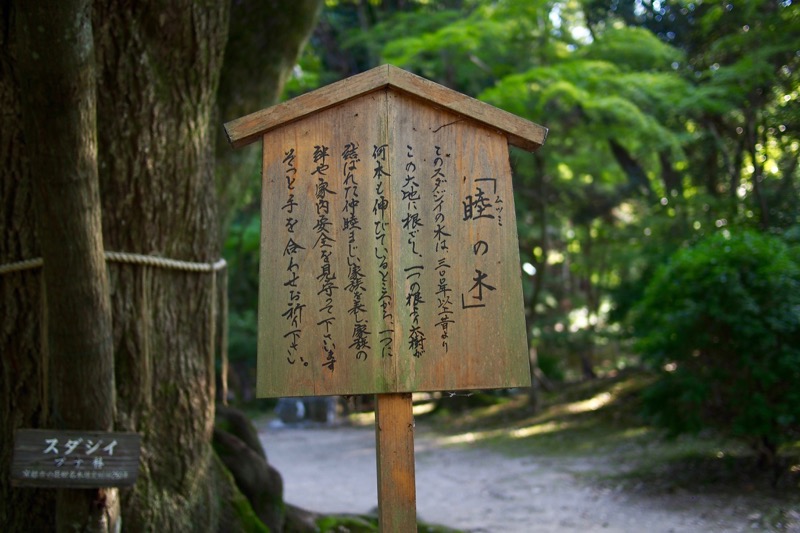 「睦の木」
ムツミ
このスダジイの木は三百年以上昔より
この大地に根ざらし、一つの根より大樹が
何本も伸びているところから一つに
結ばれた仲睦まじい家族を表し家族の
絆や家内安全を見守って下さいます
そっと手を合わせお祈り下さい。
スダジイ
ブナ科